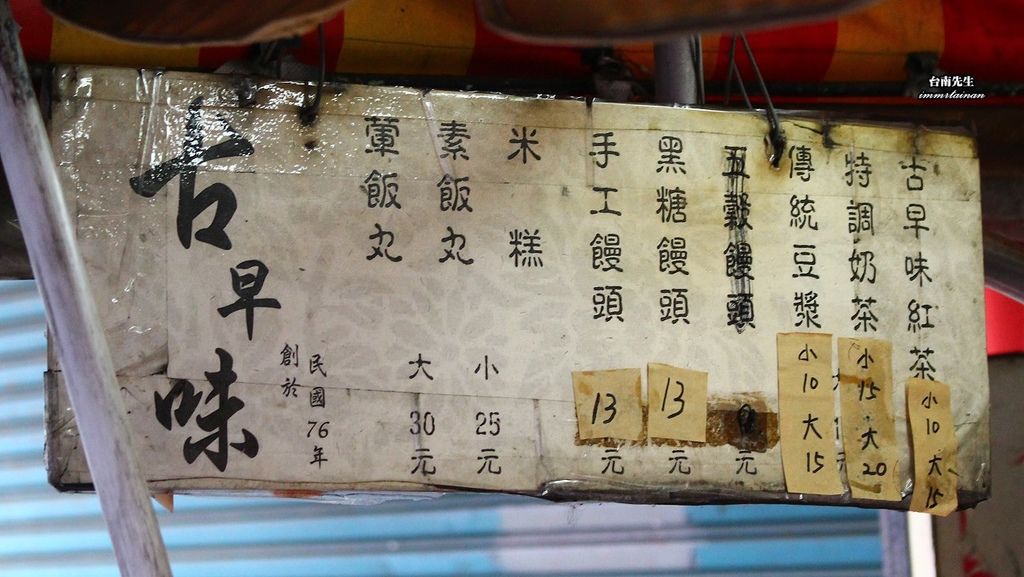 台南先生
immrtainan
古早味紅茶
小10大15
特調奶茶
小15大20
傳統豆漿
小10大15
五穀饅頭
元
黑糖饅頭
13
元
手工饅頭
13
元
米糕
小25元
素飯丸
大30元
葷飯丸
民國76年
創於
古早味